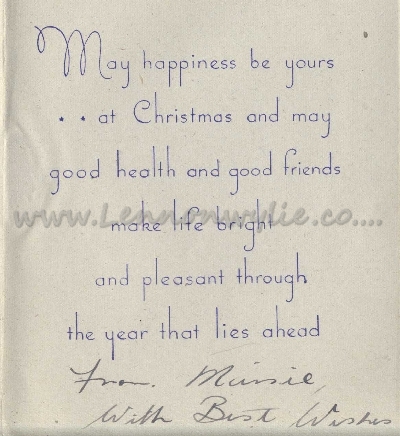 May happiness be yours
. . at Christmas and may
good health and good friends
www.Lennonwylie.co....
make life bright
and pleasant through
the year that lies ahead
From
With Best Wishes